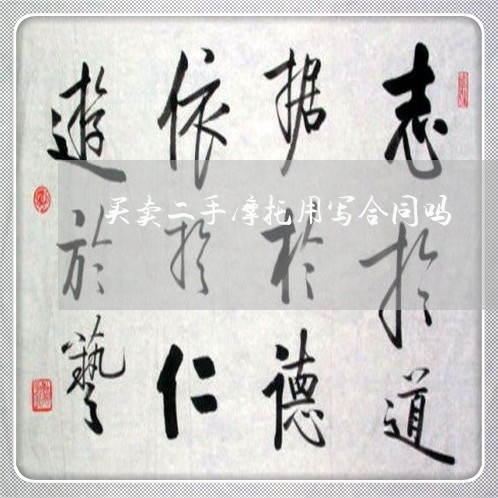 志於道
据於德
依於仁
遊於藝
买卖二手摩托用写合同吗